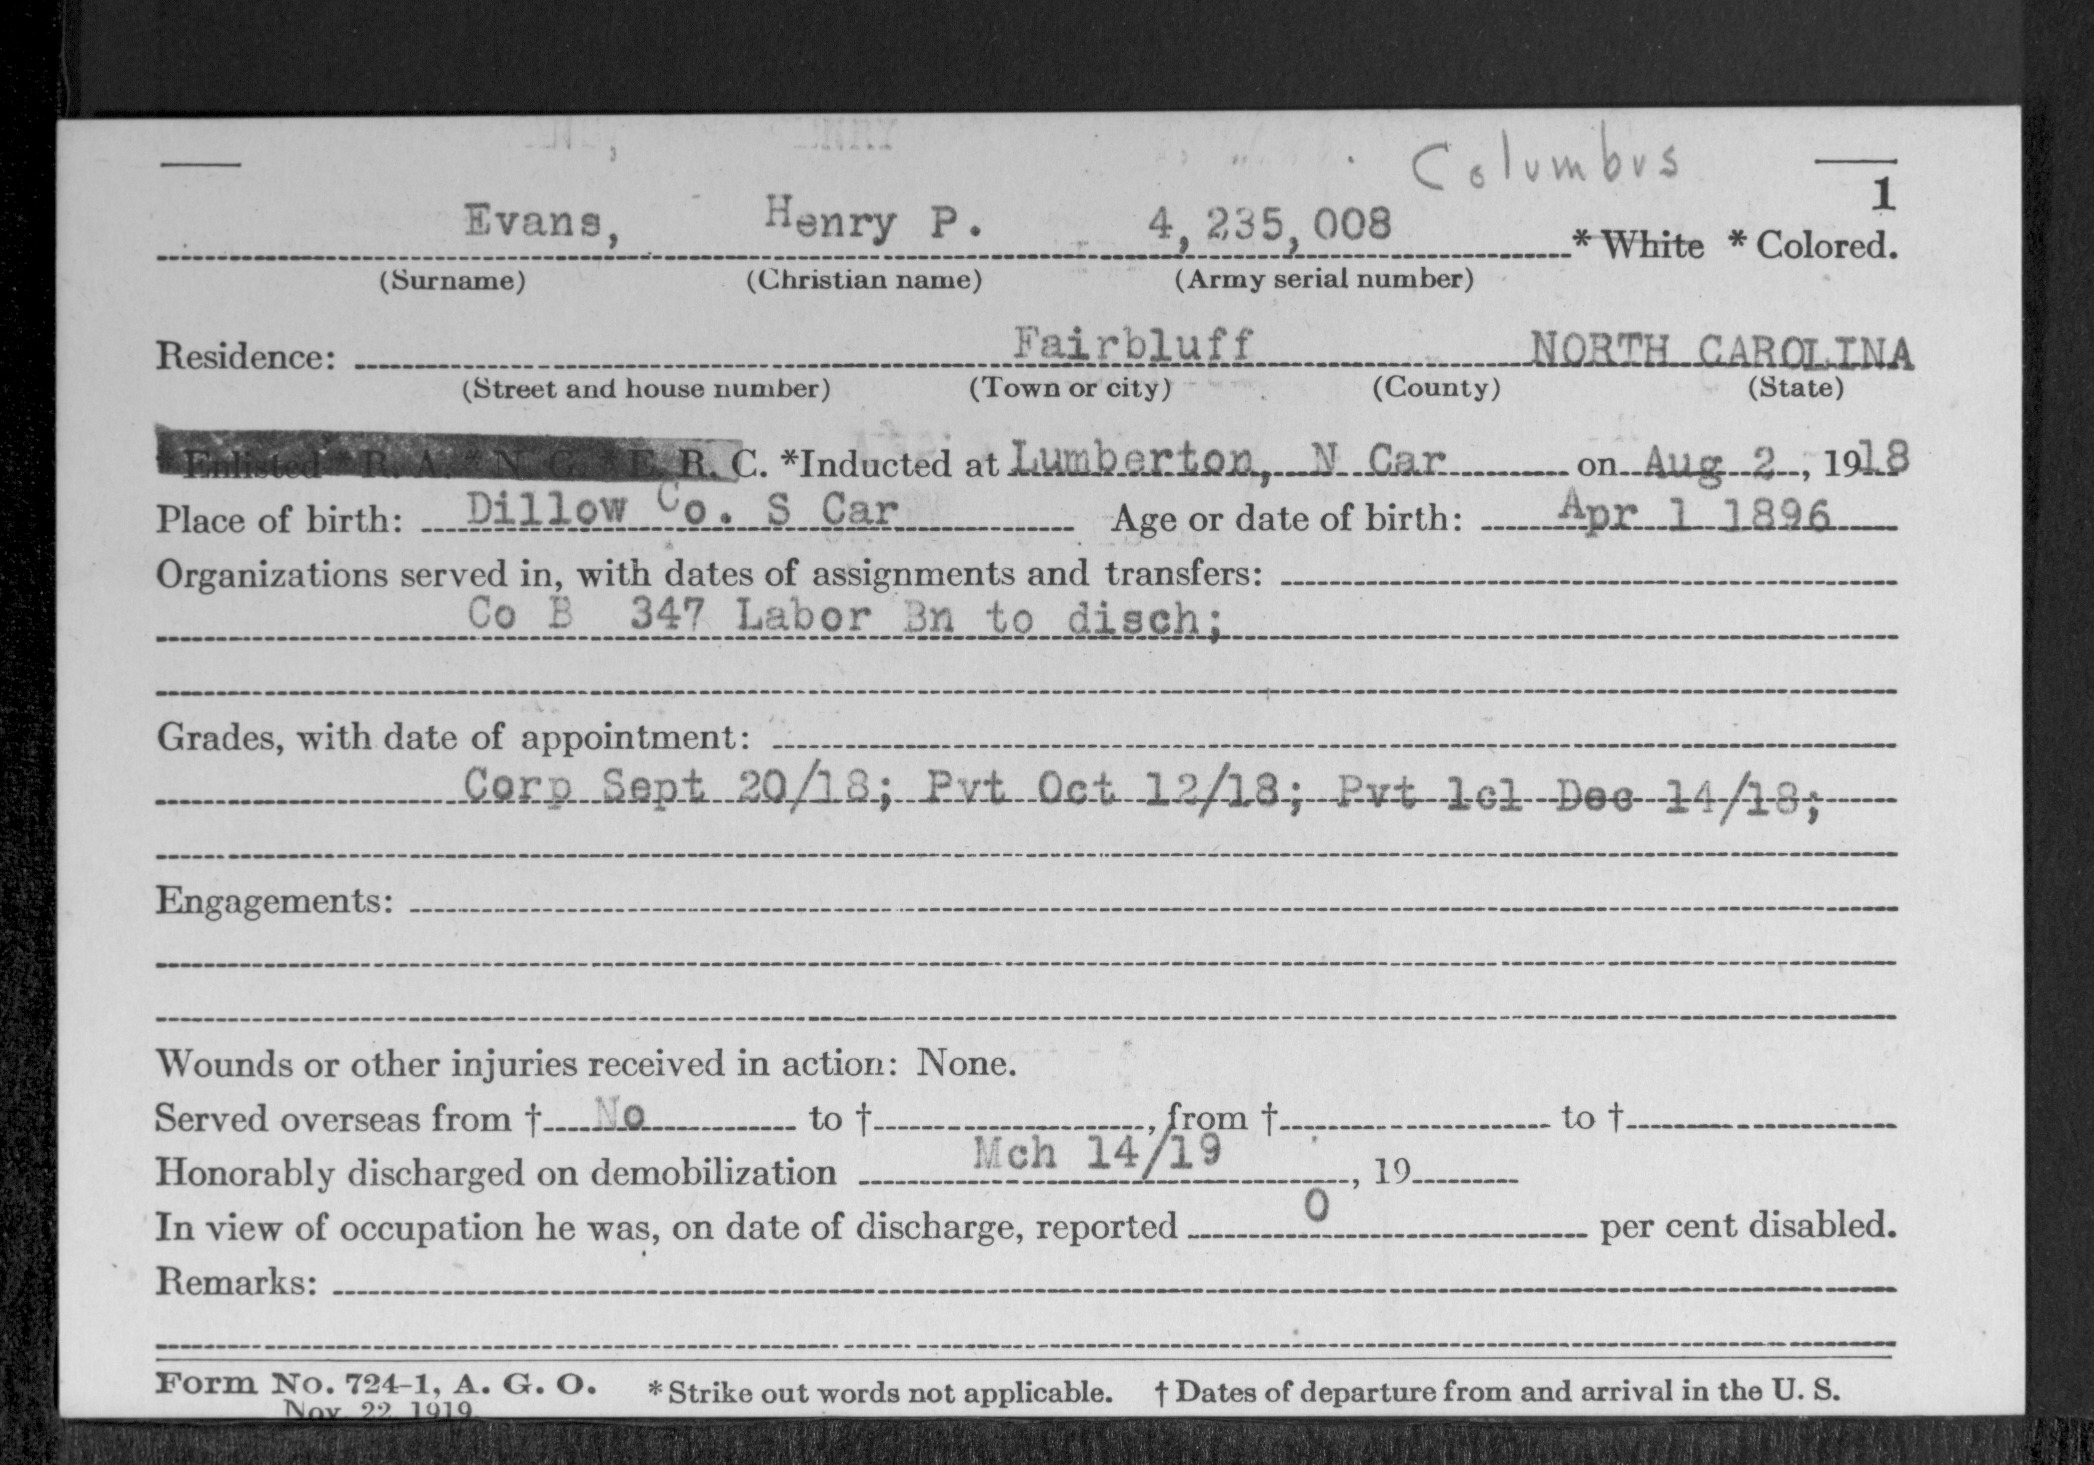 Columbus
1
Evans, Henry P. 4,235,008 * White * Colored.
(Surname) (Christian name) (Army serial number)
Residence: Fairbluff NORTH CAROLINA
(Street and house number) (Town or city) (County) (State)
* Enlisted * R. A. * N. G. * E. R. C. *Inducted at Lumberton, N Car on Aug 2, 1918
Place of birth: Dillow Co. S Car Age or date of birth: Apr 1 1896
Organizations served in, with dates of assignments and transfers:
Co B 347 Labor Bn to disch;
Grades, with date of appointment:
Corp Sept 20/18; Pvt Oct 12/18; Pvt 1cl Dec 14/18;
Engagements:
Wounds or other injuries received in action: None.
Served overseas from † No to †, from † to †
Honorably discharged on demobilization Mch 14/19, 19
In view of occupation he was, on date of discharge, reported 0 per cent disabled.
Remarks:
Form No. 724-1, A. G. O. * Strike out words not applicable. † Dates of departure from and arrival in the U. S.
Nov. 22, 1919